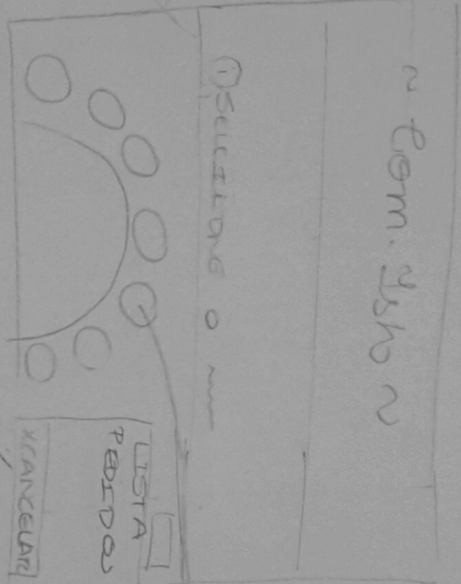 ~ Com. Isho ~
① SELECIONE O
LISTA
PEDIDOS
X CANCELAR